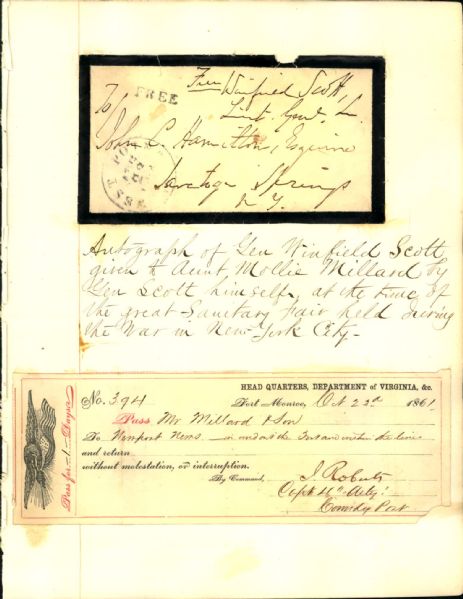 FREE
Free Winfield Scott,
Lieut. Genl.
To
John C. Hamilton, Esquire
Saratoga Springs
N. Y.
WEST POINT
Autograph of Gen Winfield Scott
given to Aunt Mollie Millard by
Gen Scott himself, at the time of
the great Sanetary Fair held during
the War in New-York City-
HEAD QUARTERS, DEPARTMENT of VIRGINIA, &c.
No. 394
Fort Monroe, Oct 23d 1861.
Pass Mr. Millard & Son
To Newport News
and return
without molestation, or interruption.
By Command,
J Roberts
Capt 4th Arty.
Comdg Post
Pass for -1- Days